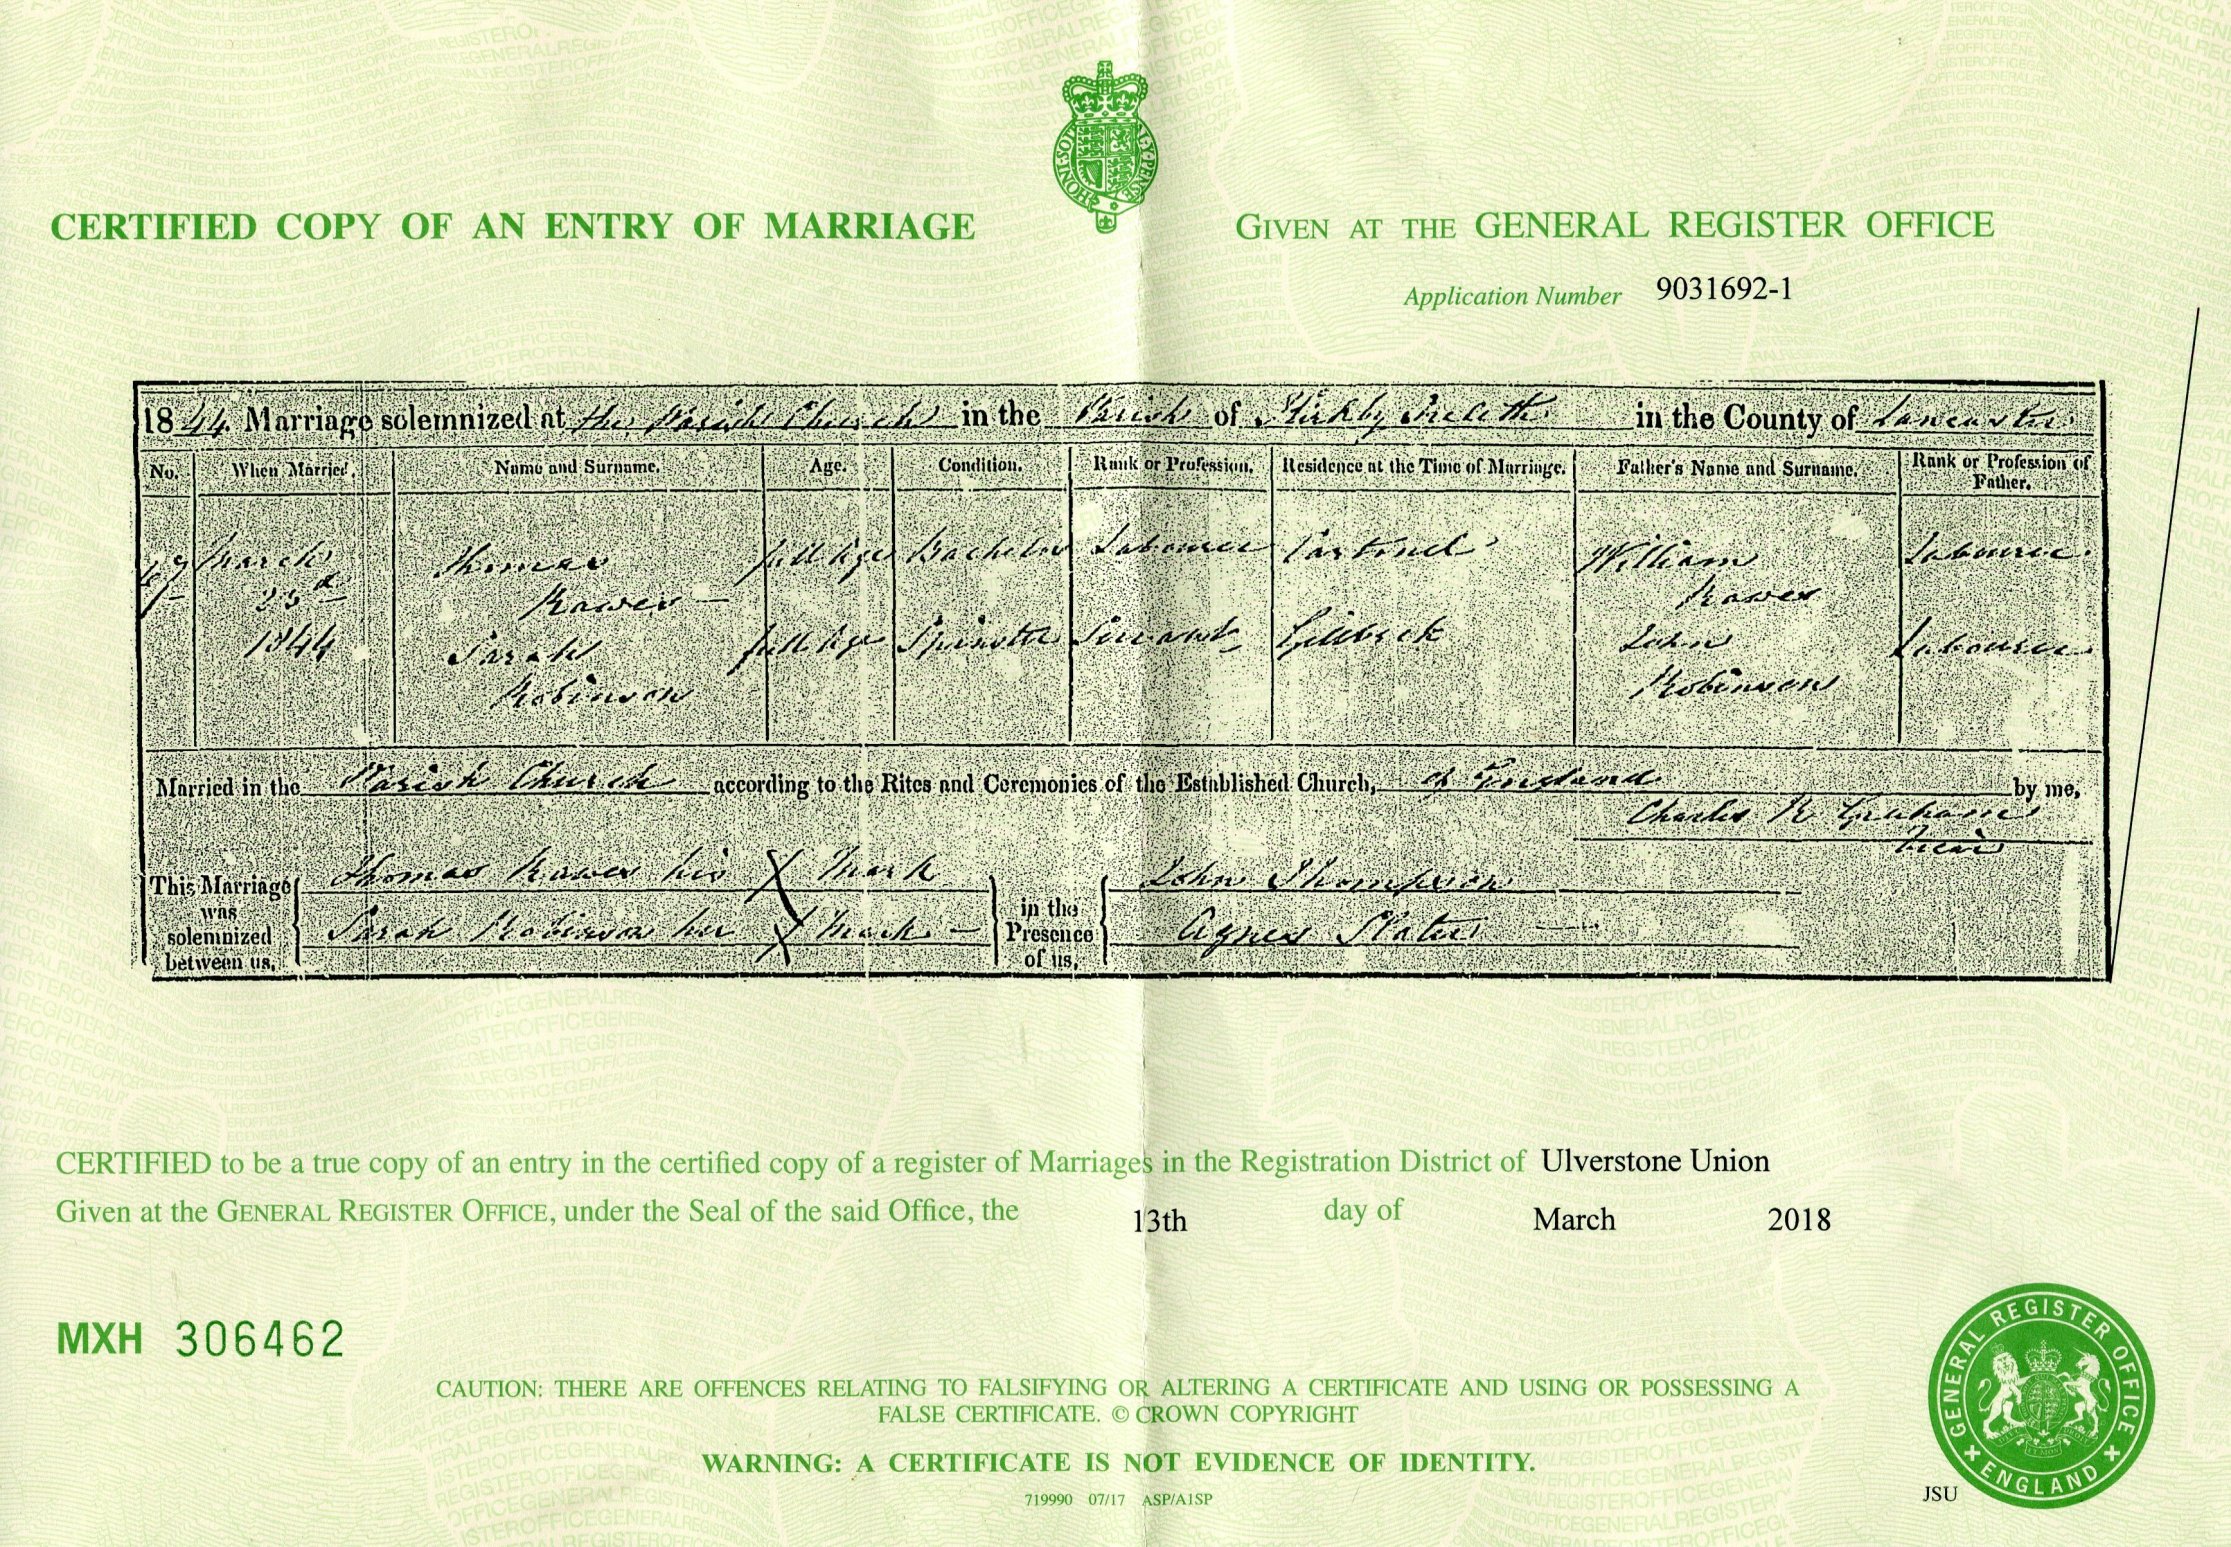 CERTIFIED COPY OF AN ENTRY OF MARRIAGE
GIVEN AT THE GENERAL REGISTER OFFICE
Application Number 9031692-1
1844. Marriage solemnized at the Parish Church in the Parish of Kirkby Ireleth in the County of Lancaster
No. When Married. Name and Surname. Age. Condition. Rank or Profession. Residence at the Time of Marriage. Father's Name and Surname. Rank or Profession of Father.
67 March 23d 1844 Thomas Rawes full Age Bachelor Labourer Cartmel William Rawes Labourer
Sarah Robinson full Age Spinster Servant Gillbeck John Robinson Labourer
Married in the Parish Church according to the Rites and Ceremonies of the Established Church, of England by me,
Charles R Graham
Vicar
This Marriage was solemnized between us, Thomas Rawes his X Mark
Sarah Robinson her X Mark
in the Presence of us, John Thompson
Agnes Slater
CERTIFIED to be a true copy of an entry in the certified copy of a register of Marriages in the Registration District of Ulverstone Union
Given at the GENERAL REGISTER OFFICE, under the Seal of the said Office, the 13th day of March 2018
MXH 306462
CAUTION: THERE ARE OFFENCES RELATING TO FALSIFYING OR ALTERING A CERTIFICATE AND USING OR POSSESSING A
FALSE CERTIFICATE. © CROWN COPYRIGHT
WARNING: A CERTIFICATE IS NOT EVIDENCE OF IDENTITY.
719990 07/17 ASP/A1SP
JSU
GENERAL REGISTER OFFICE
ENGLAND